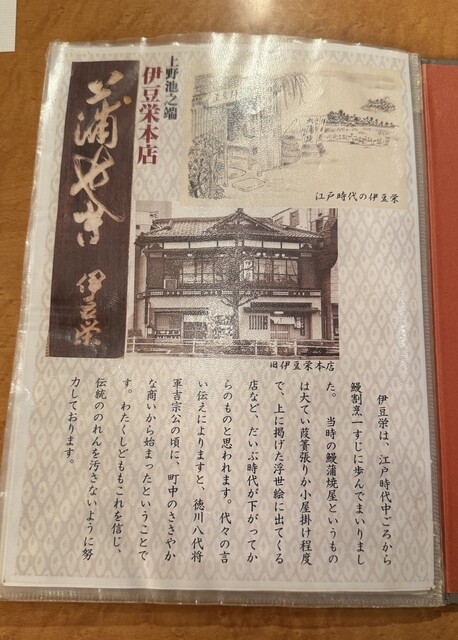 上野池之端
伊豆栄本店
蒲やき
伊豆栄
江戸時代の伊豆栄
旧伊豆栄本店
伊豆栄は、江戸時代中ごろから
鰻割烹一すじに歩んでまいりまし
た。 当時の鰻蒲焼屋というもの
は大てい葭簀張りか小屋掛け程度
で、上に掲げた浮世絵に出てくる
店など、だいぶ時代が下がってか
らのものと思われます。代々の言
い伝えによりますと、徳川八代将
軍吉宗公の頃に、町中のささやか
な商いから始まったということで
す。わたくしどももこれを信じ、
伝統ののれんを汚さないように努
力しております。